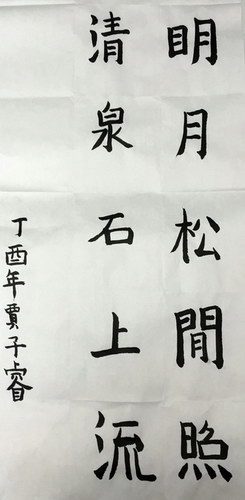 明月松間照
清泉石上流
丁酉年賈子睿